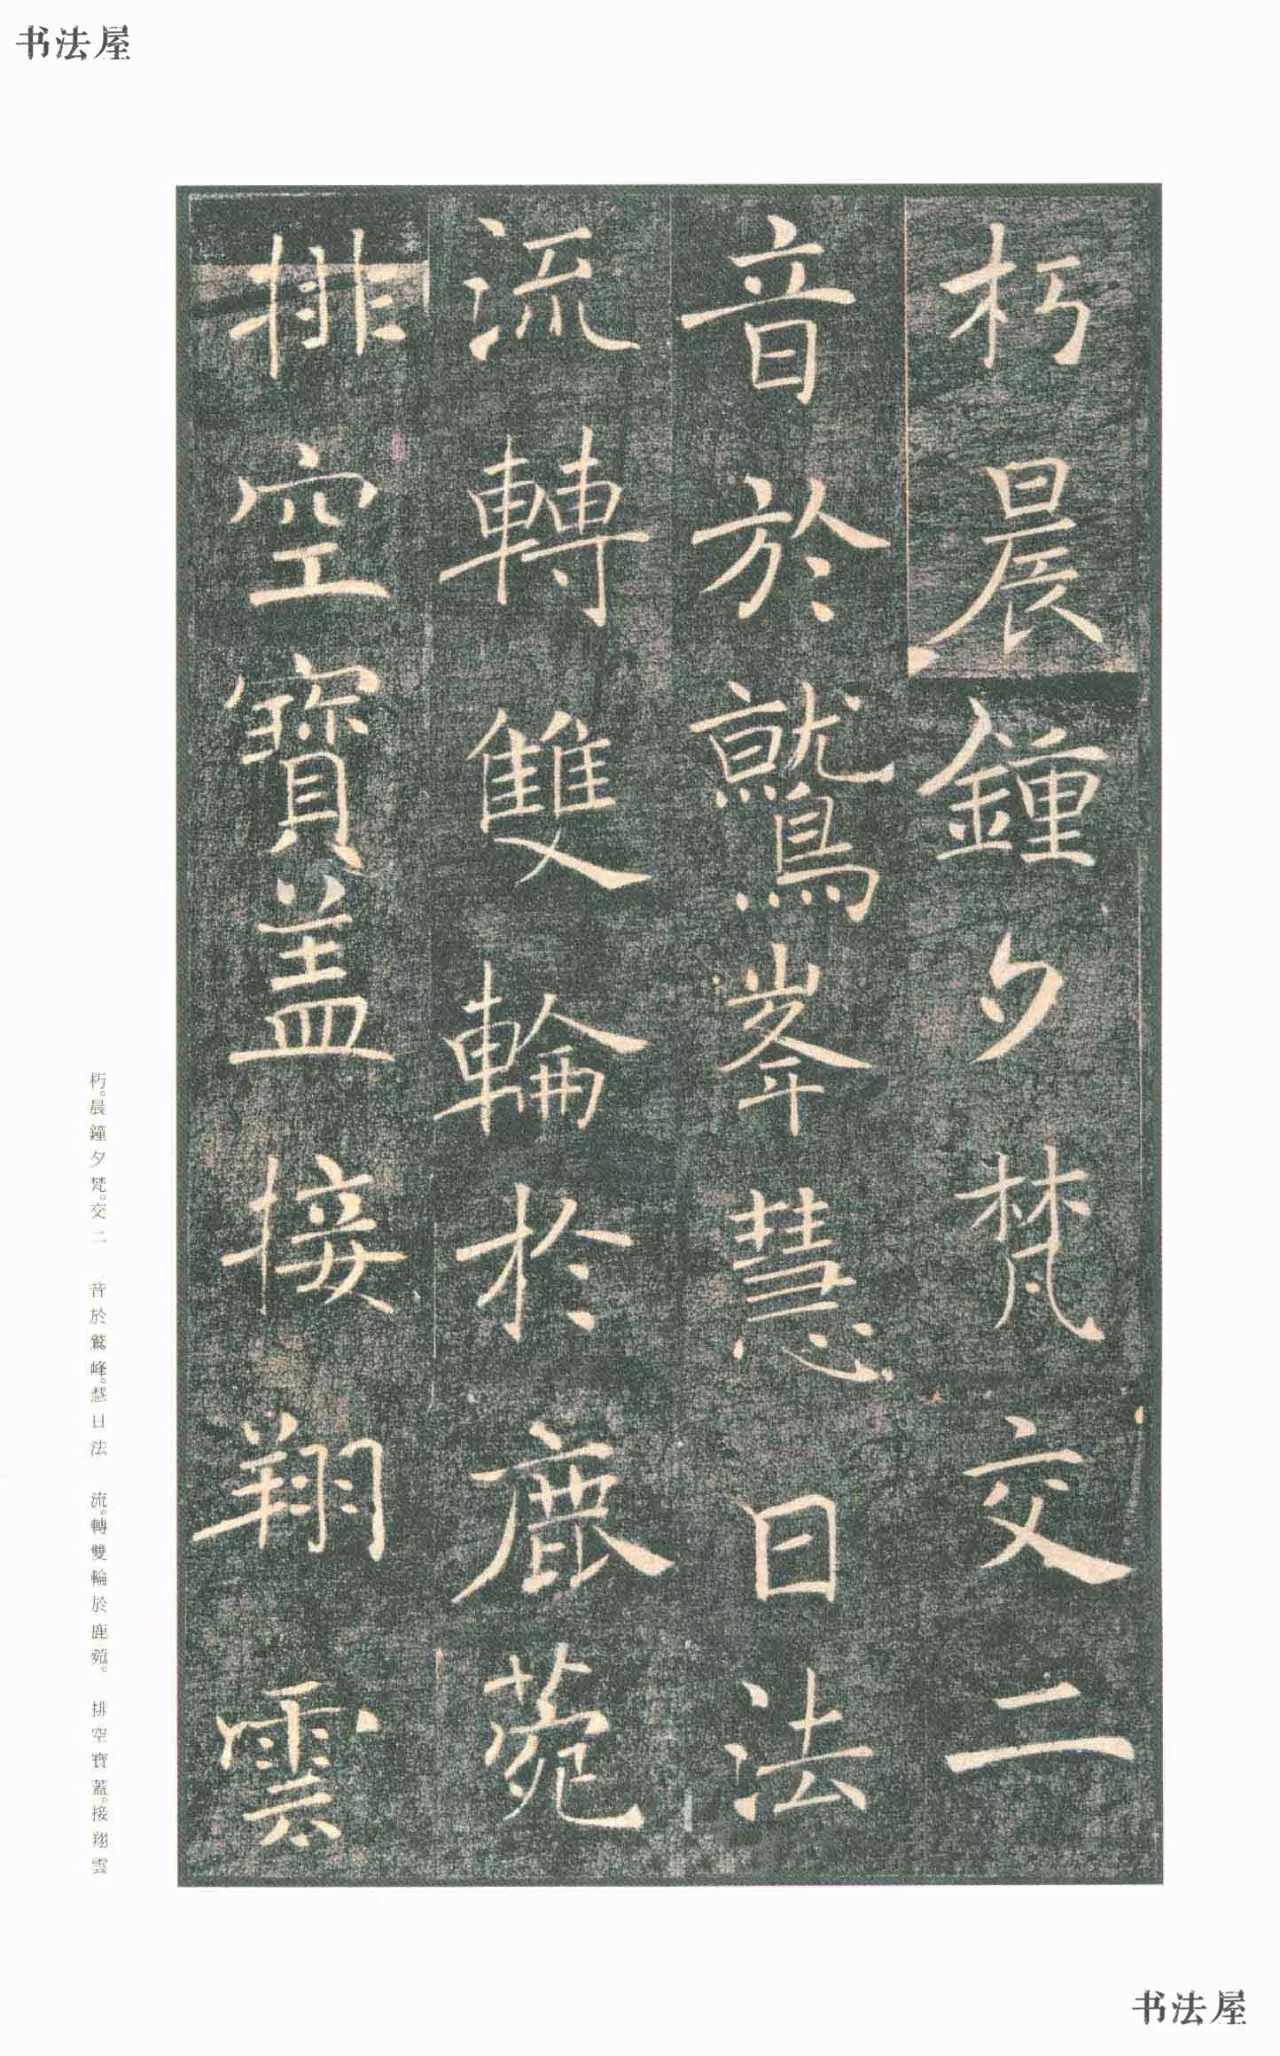 书法屋
朽晨鐘夕梵交二
音於鷲峯慧日法
流轉雙輪於鹿菀
排空寶盖接翔雲
朽。晨鐘夕梵。交二　音於鷲峰。慧日法　流。轉雙輪於鹿菀。　排空寶蓋。接翔雲
书法屋